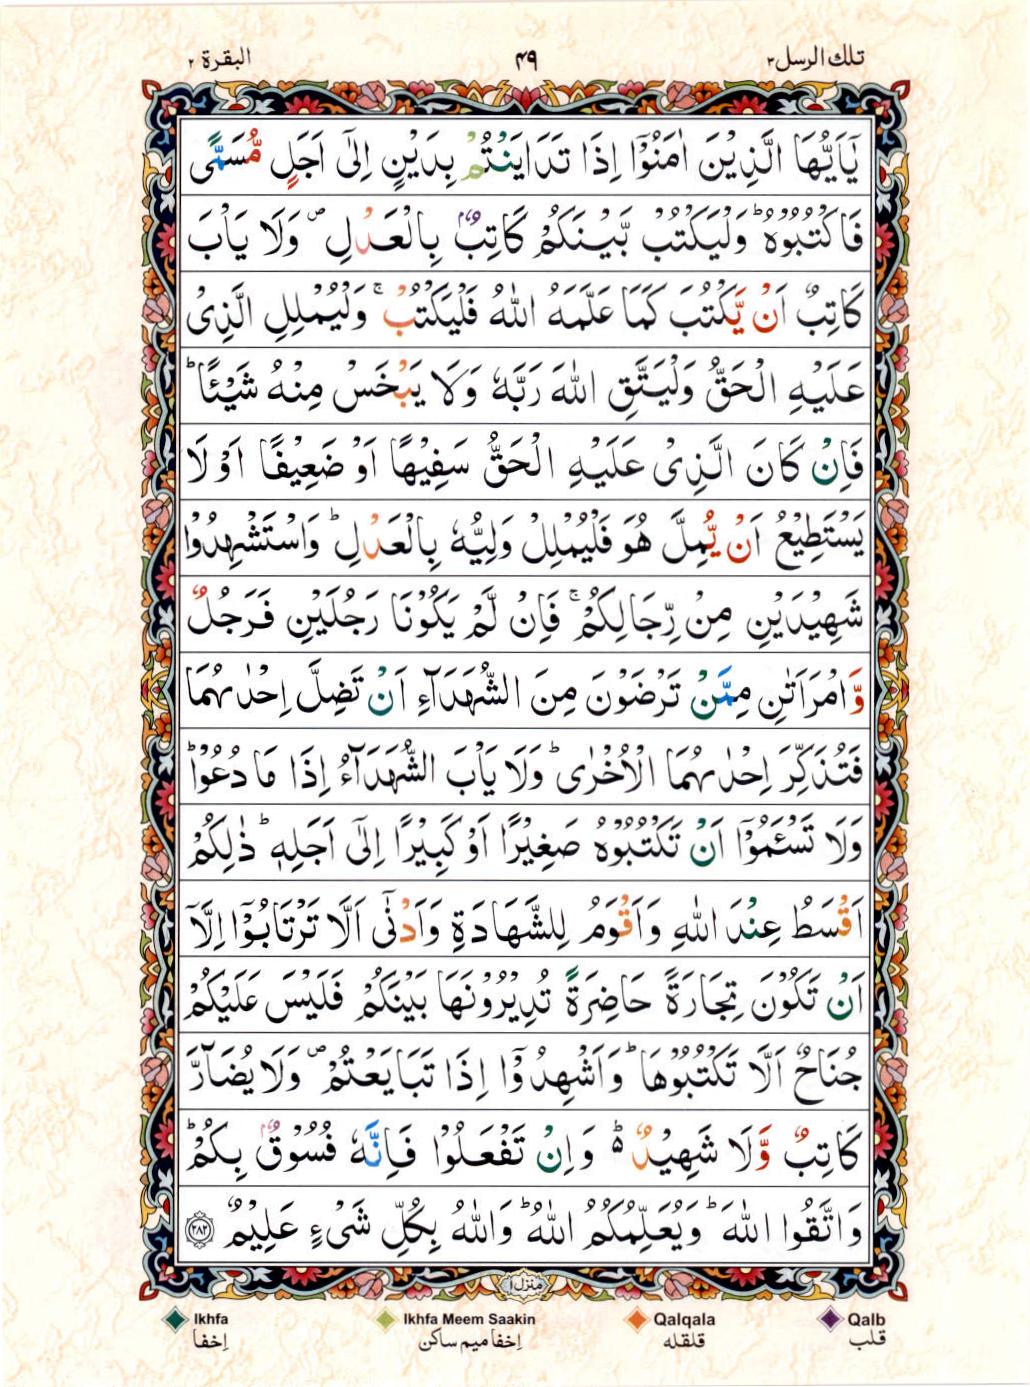 تلك الرسل ٣
٤٩
البقرة ٢
يٰۤاَيُّهَا الَّذِيْنَ اٰمَنُوْۤا اِذَا تَدَايَنْتُمْ بِدَيْنٍ اِلٰۤى اَجَلٍ مُّسَمًّى
فَاكْتُبُوْهُ ؕ وَلْيَكْتُبْ بَّيْنَكُمْ كَاتِبٌۢ بِالْعَدْلِ ۪ وَلَا يَاْبَ
كَاتِبٌ اَنْ يَّكْتُبَ كَمَا عَلَّمَهُ اللّٰهُ فَلْيَكْتُبْ ۚ وَلْيُمْلِلِ الَّذِىْ
عَلَيْهِ الْحَقُّ وَلْيَتَّقِ اللّٰهَ رَبَّهٗ وَلَا يَبْخَسْ مِنْهُ شَيْـًٔا ؕ
فَاِنْ كَانَ الَّذِىْ عَلَيْهِ الْحَقُّ سَفِيْهًا اَوْ ضَعِيْفًا اَوْ لَا
يَسْتَطِيْعُ اَنْ يُّمِلَّ هُوَ فَلْيُمْلِلْ وَلِيُّهٗ بِالْعَدْلِ ؕ وَاسْتَشْهِدُوْا
شَهِيْدَيْنِ مِنْ رِّجَالِكُمْ ۚ فَاِنْ لَّمْ يَكُوْنَا رَجُلَيْنِ فَرَجُلٌ
وَّامْرَاَتٰنِ مِمَّنْ تَرْضَوْنَ مِنَ الشُّهَدَآءِ اَنْ تَضِلَّ اِحْدٰىهُمَا
فَتُذَكِّرَ اِحْدٰىهُمَا الْاُخْرٰى ؕ وَلَا يَاْبَ الشُّهَدَآءُ اِذَا مَا دُعُوْا ؕ
وَلَا تَسْـَٔمُوْۤا اَنْ تَكْتُبُوْهُ صَغِيْرًا اَوْ كَبِيْرًا اِلٰۤى اَجَلِهٖ ؕ ذٰلِكُمْ
اَقْسَطُ عِنْدَ اللّٰهِ وَاَقْوَمُ لِلشَّهَادَةِ وَاَدْنٰۤى اَلَّا تَرْتَابُوْۤا اِلَّاۤ
اَنْ تَكُوْنَ تِجَارَةً حَاضِرَةً تُدِيْرُوْنَهَا بَيْنَكُمْ فَلَيْسَ عَلَيْكُمْ
جُنَاحٌ اَلَّا تَكْتُبُوْهَا ؕ وَاَشْهِدُوْۤا اِذَا تَبَايَعْتُمْ ۪ وَلَا يُضَآرَّ
كَاتِبٌ وَّلَا شَهِيْدٌ ؕ۬ وَاِنْ تَفْعَلُوْا فَاِنَّهٗ فُسُوْقٌۢ بِكُمْ ؕ
وَاتَّقُوا اللّٰهَ ؕ وَيُعَلِّمُكُمُ اللّٰهُ ؕ وَاللّٰهُ بِكُلِّ شَىْءٍ عَلِيْمٌ ﴿۲۸۲﴾
منزل ١
Ikhfa
اخفا
Ikhfa Meem Saakin
اخفا ميم ساكن
Qalqala
قلقله
Qalb
قلب